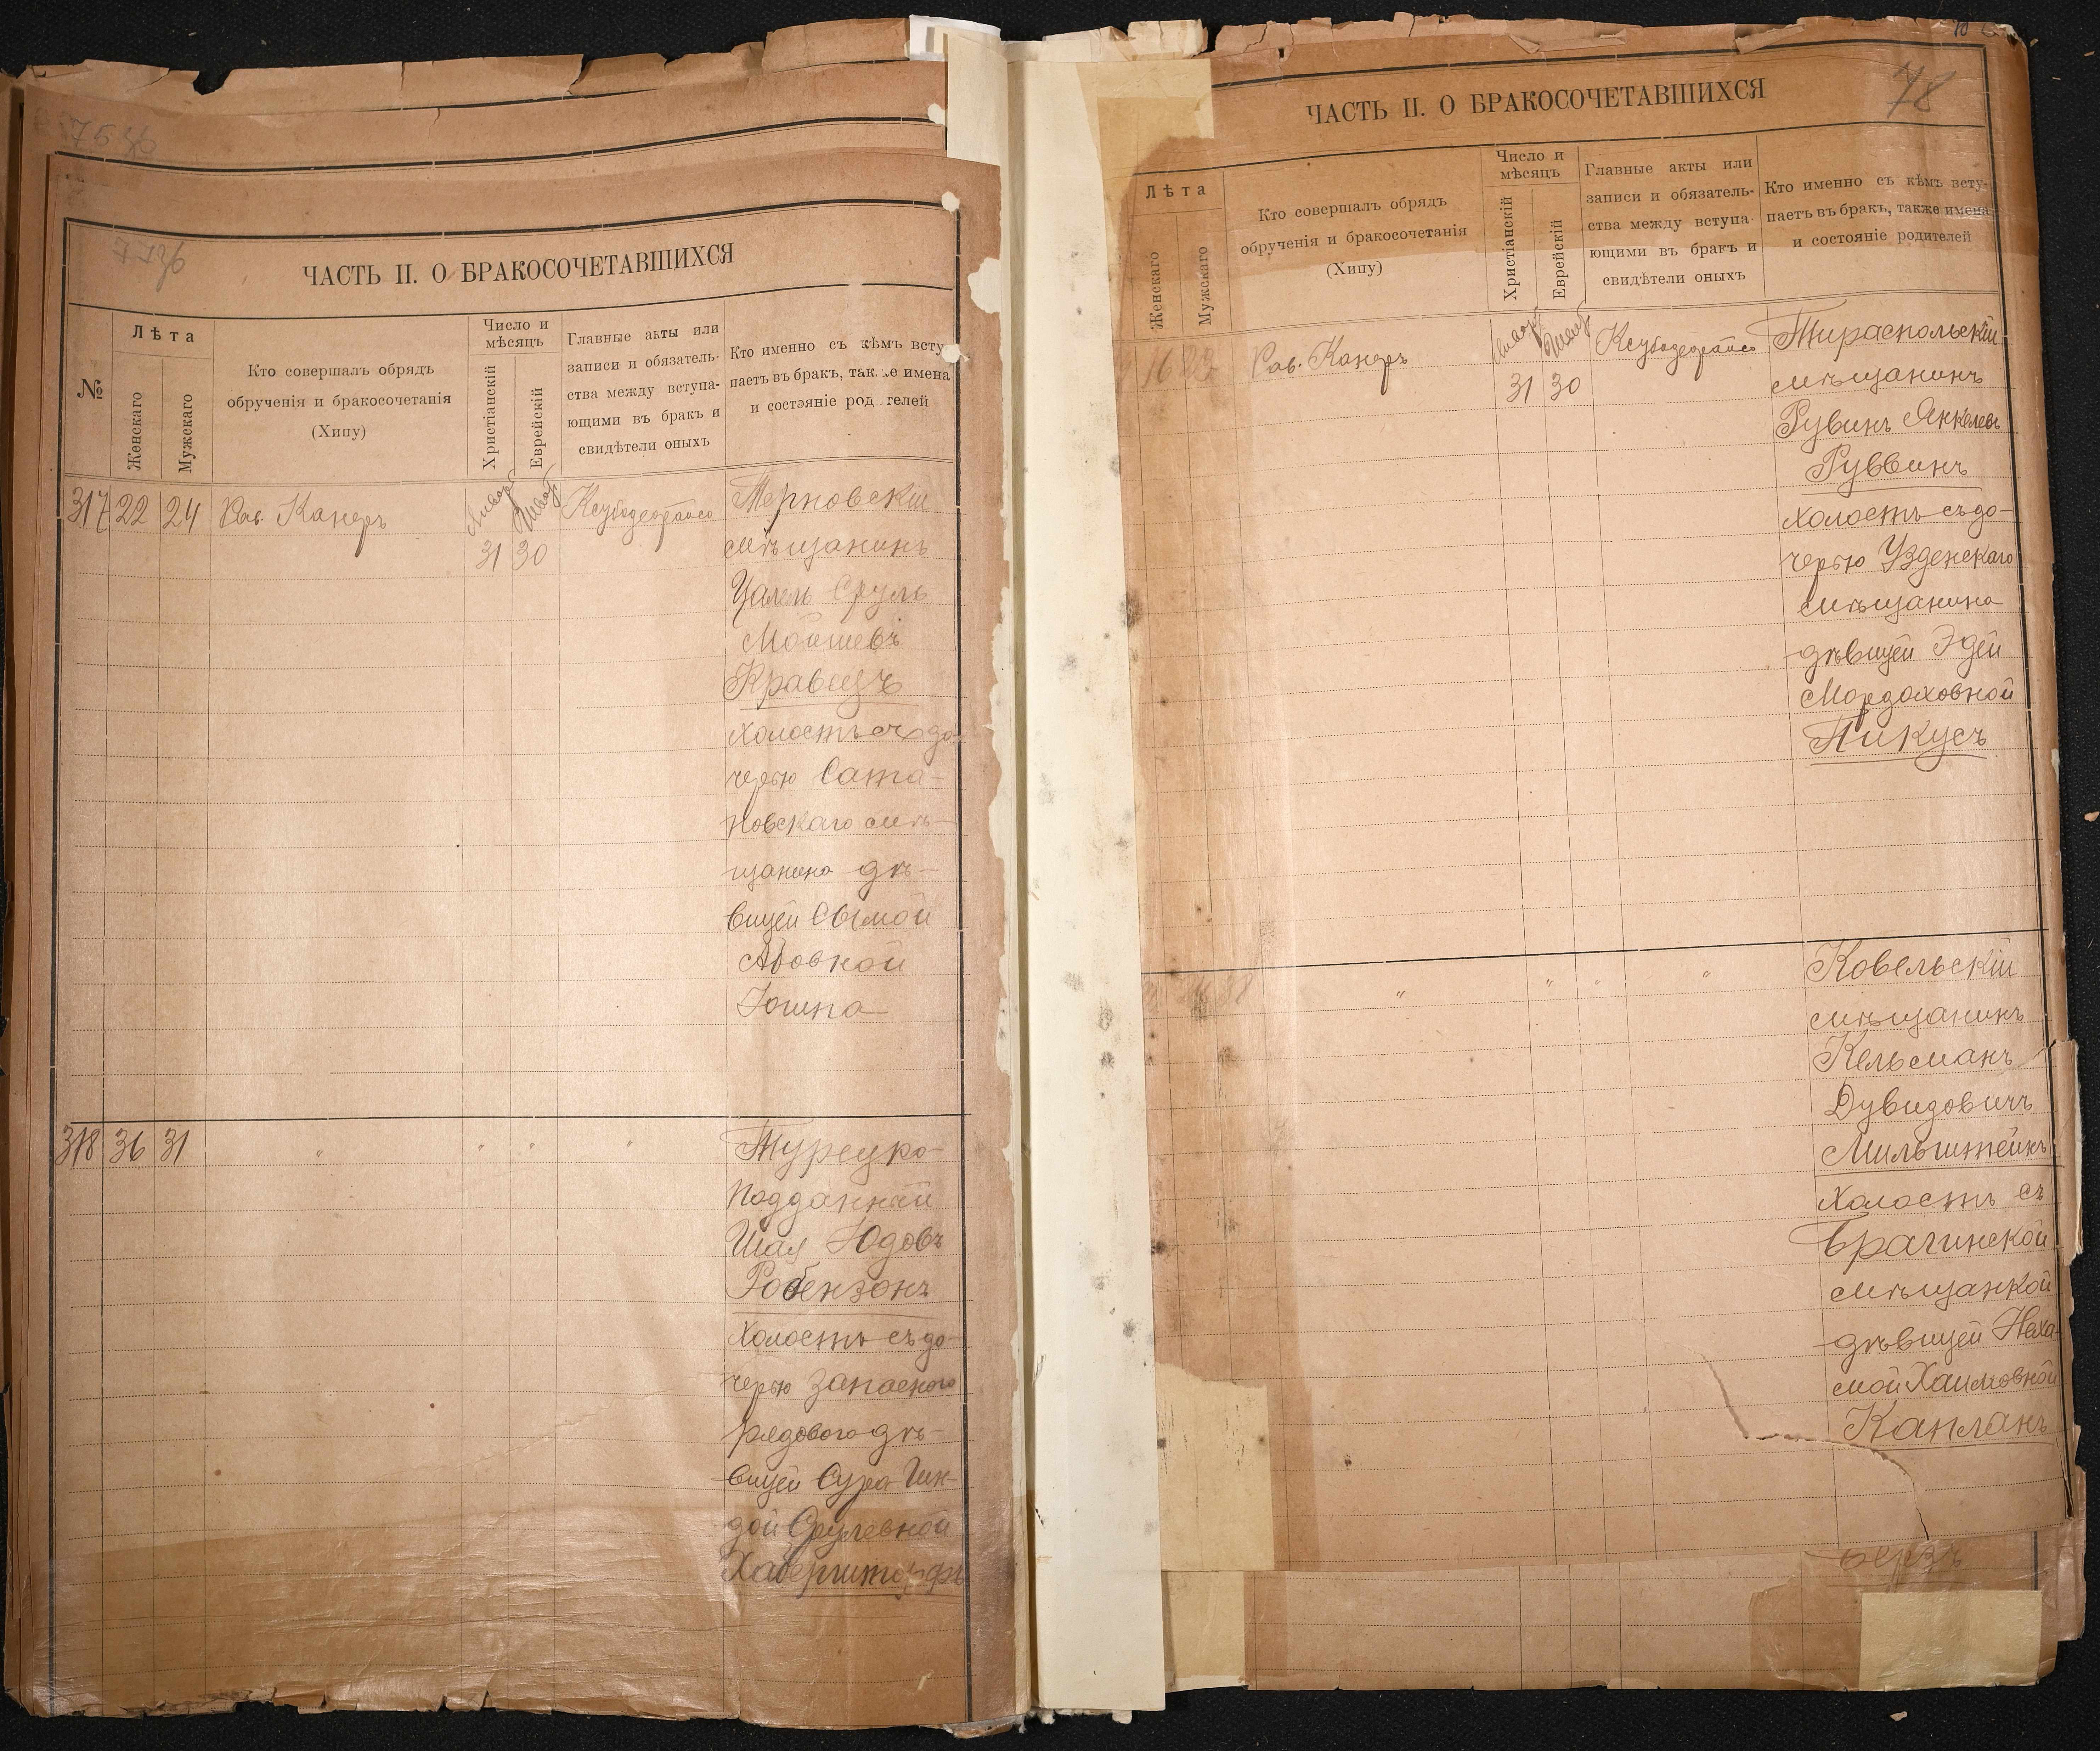 ЧАСТЬ II. О БРАКОСОЧЕТАВШИХСЯ
№
Лѣта
Женскаго
Мужскаго
Кто совершалъ обрядъ
обрученія и бракосочетанія
(Хипу)
Число и
мѣсяцъ
Христіанскій
Еврейскій
Главные акты или
записи и обязатель-
ства между вступа-
ющими въ бракъ и
свидѣтели оныхъ
Кто именно съ кѣмъ всту
паетъ въ бракъ, так е имена
и состэяніе род телей
317 22 24 Рав. Канеръ
31 30
Терновскій
мѣщанинъ
Цалель Сруль
Мошковъ
Кравецъ
холостъ съ до-
черью Сата-
новскаго мѣ-
щанина дѣ-
вицей Сымой
Абовной
318 36 31 " " " "
Турецко-
подданный
Шая Юдовъ
Робензонъ
холостъ съ до-
черью запаснаго
рядового дѣ-
вицей Сура Гин-
дой Срулевной
78
ЧАСТЬ II. О БРАКОСОЧЕТАВШИХСЯ
Лѣта
Женскаго
Мужскаго
Кто совершалъ обрядъ
обрученія и бракосочетанія
(Хипу)
Число и
мѣсяцъ
Христіанскій
Еврейскій
Главные акты или
записи и обязатель-
ства между вступа-
ющими въ бракъ и
свидѣтели оныхъ
Кто именно съ кѣмъ всту-
паетъ въ бракъ, также имена
и состояніе родителей
16 22 Рав. Канеръ
31 30
Тираспольскій
мѣщанинъ
Рувинъ Янкелевъ
Руввинъ
холостъ съ до-
черью Узденскаго
мѣщанина
дѣвицей Эдей
Мордоховной
Пикусъ
" " " "
Ковельскій
мѣщанинъ
Кельманъ
Дувидовичъ
Мильштейнъ
холостъ съ
Брагинской
мѣщанкой
дѣвицей Неха-
мой Хаимовной
Капланъ